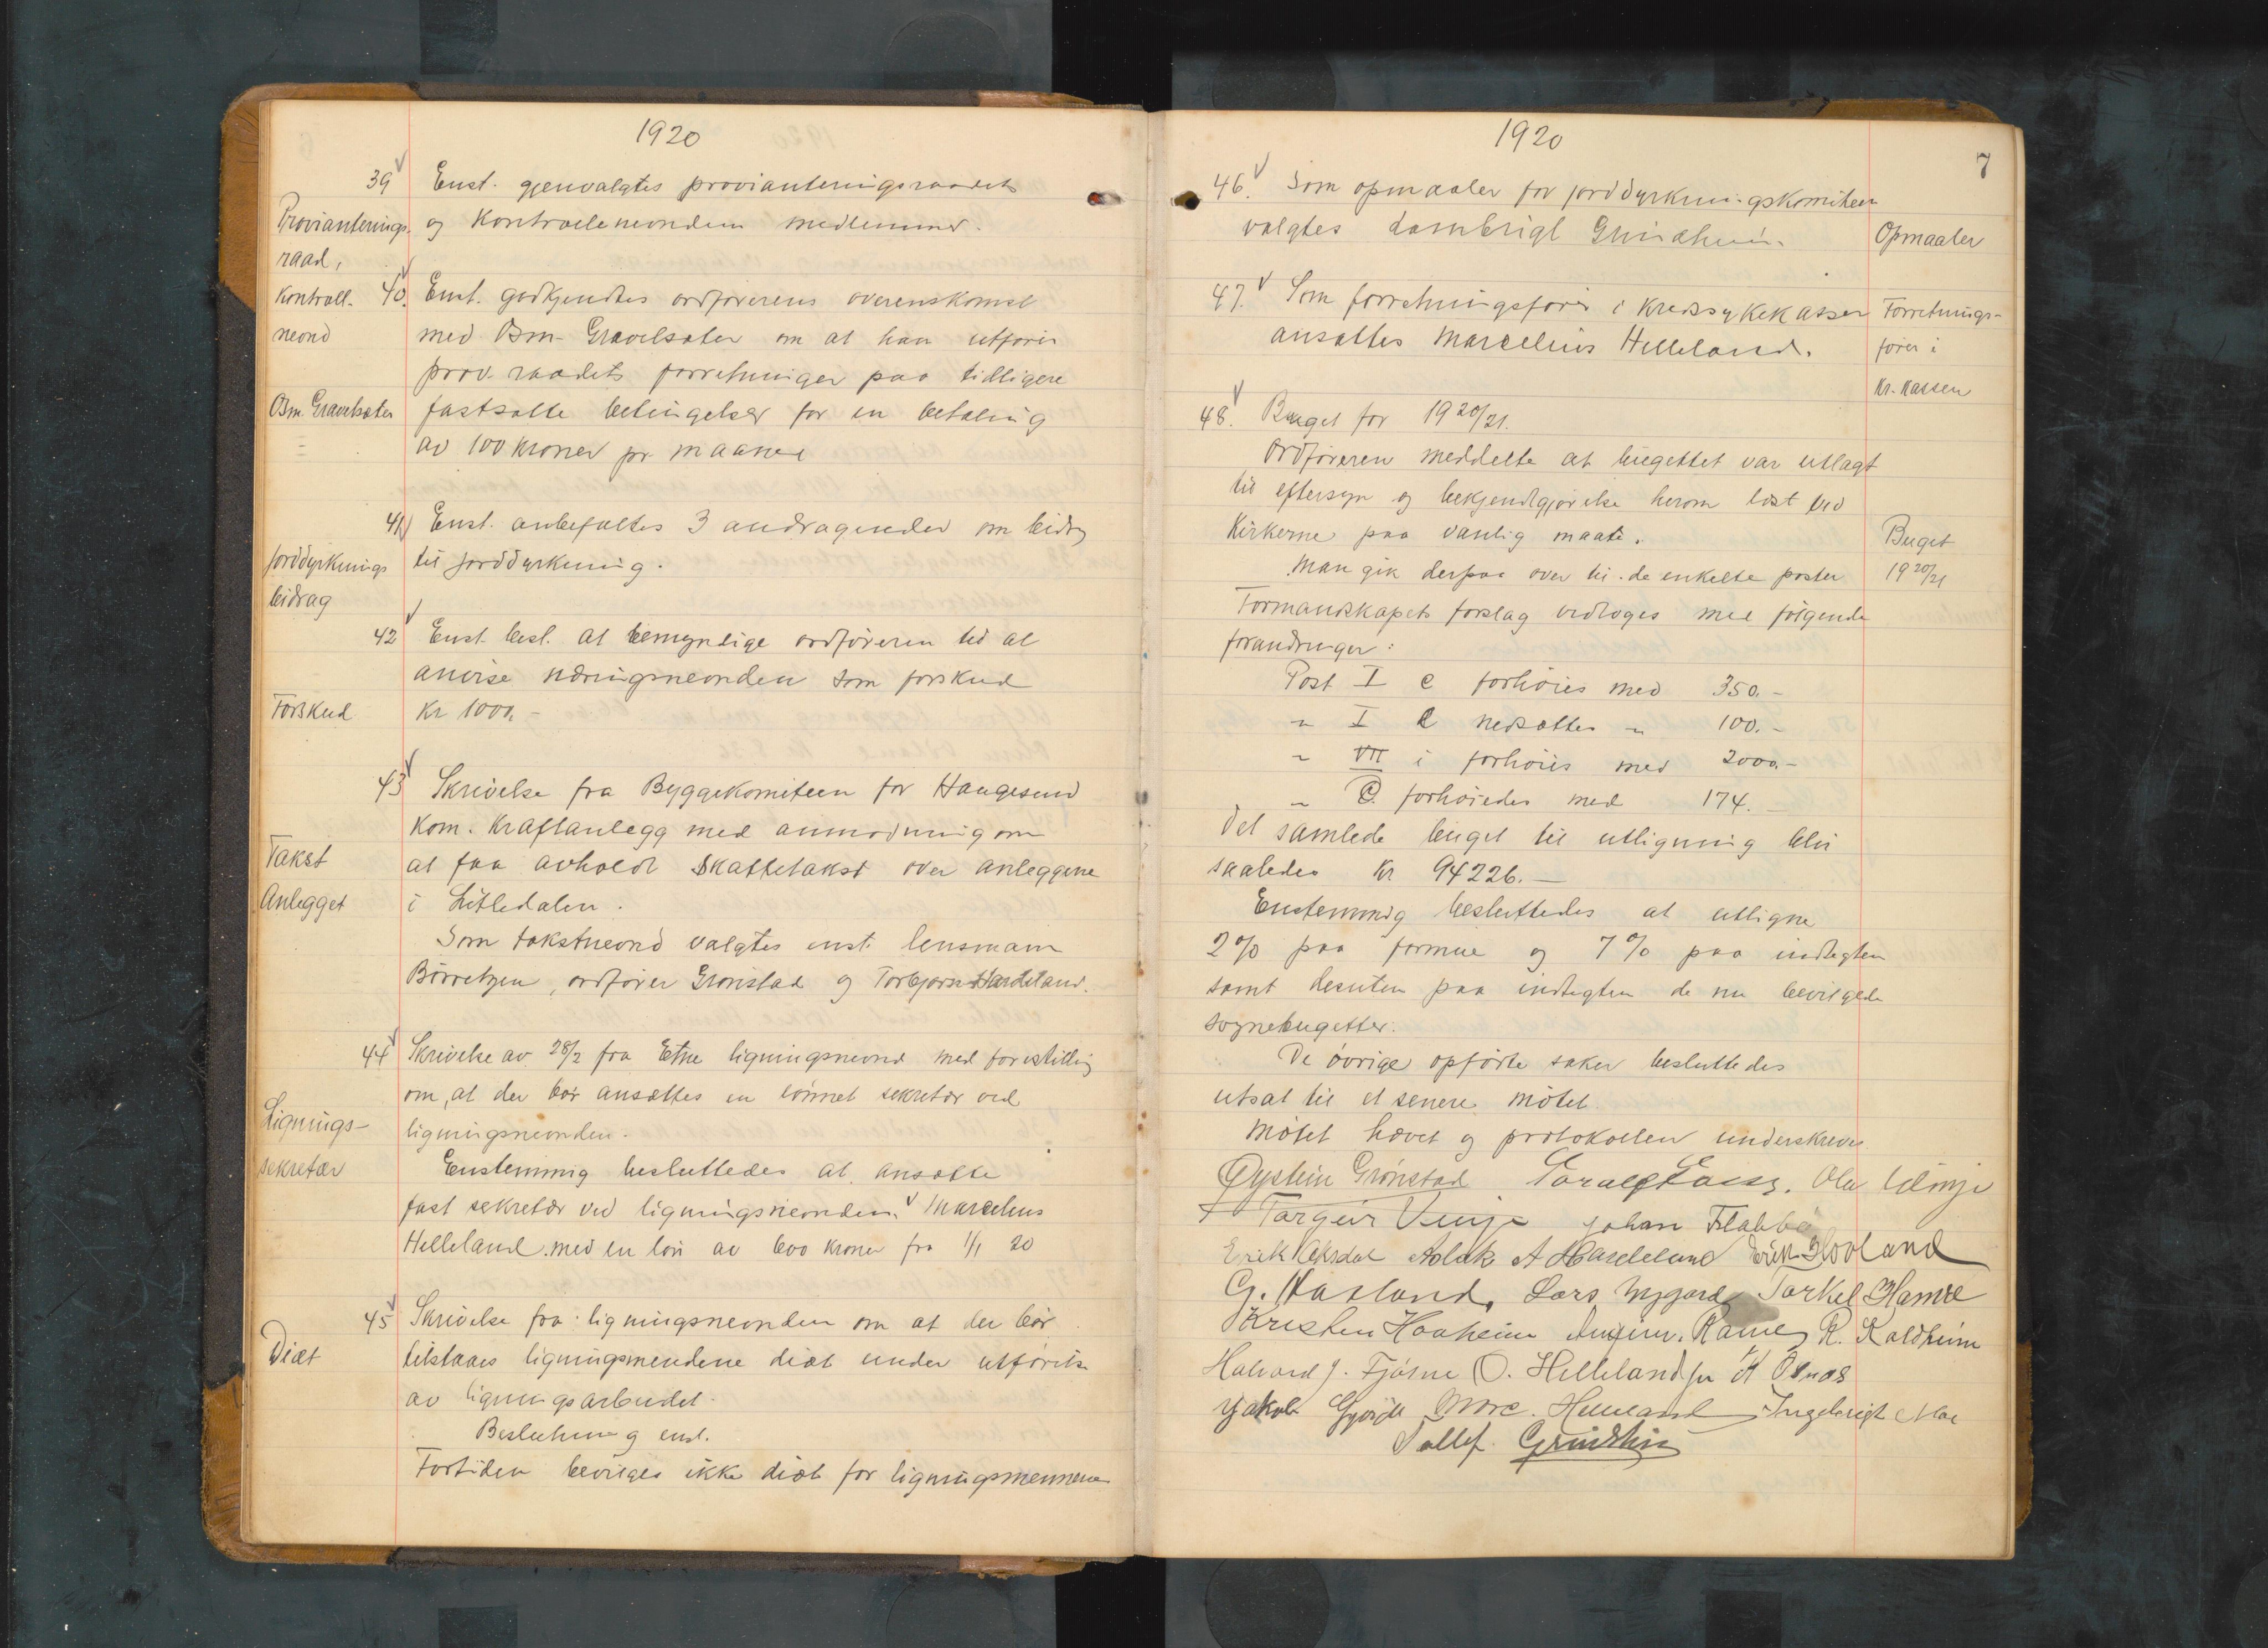 1920
39 Enst. gjenvalgtes provianteringsraadets
Provianterings- og Kontrollenevnden medlemmer.
raad,
Kontroll- 40. Enst. godkjendtes ordförerens overenskomst
nevnd med Bm Gravelsæter om at han utförer
prov. raadets forretninger paa tidligere
Bm. Gravelsæter fastsatte betingelser for en betaling
av 100 kroner pr. maaned
41) Enst. anbefaltes 3 andragender om bidrag
Jorddyrknings til jorddyrkning.
bidrag
42 Enst. besl. at bemyndige ordföreren til at
anvise næringsnevnden som forskud
Forskud Kr 1000,-
43 Skrivelse fra Byggekomiteen for Haugesund
Kom. Kraftanlegg med anmodning om
Takst at faa avholdt skattetakst over anleggene
Anlegget i Litledalen.
Som takstnevnd valgtes enst. lensmann
Börretzen, ordförer Grönstad og Torbjørn Hardeland.
44 Skrivelse av 28/2 fra Etne ligningsnevnd med forestilling
om, at der bör ansættes en lönnet sekretær ved
Lignings- ligningsnevnden.
sekretær Enstemmig besluttedes at ansætte
fast sekretær ved ligningsnevnden. Marcelius
Helleland med en lön av 600 kroner fra 1/1 20
45 Skrivelse fra ligningsnevnden om at der bör
Diæt tilstaaes ligningsmendene diæt under utförelse
av ligningsarbeidet.
Beslutning enst.
Fortiden bevilges ikke diæt for ligningsmennene
1920
7
46. Som opmaaler for jorddyrkningskomiteen
valgtes Lambrigt Grindheim. Opmaaler
47. Som forretningsförer i Kredssykekassen Forretnings-
ansattes Marcelius Helleland. förer i
Kr. Kassen
48. Buget for 1920/21.
Ordföreren meddelte at bugettet var utlagt
til eftersyn og bekjendtgjörelse herom læst ved
Kirkerne paa vanlig maate. Buget
Man gik derpaa over til de enkelte poster 1920/21
Formandskapets forslag vedtoges med følgende
forandringer:
Post I c forhöies med 350.-
" I nedsættes " 100.-
" VII i forhöies med 2000.-
" forhöiedes med 174.-
Det samlede buget til utligning blir
saaledes Kr 94226.-
Enstemmig besluttedes at utligne
2% paa formue og 7% paa indtegten
samt desuten paa indtegten de nu bevilgede
sognebugetter.
De övrige opförte saker besluttedes
utsat til et senere mötet
Mötet hævet og protokollen underskreven
Øystein Grönstad Ola
Targeir Vinje Johan Flabbe
Erik Aksdal Aslak A Hardeland Erik Hovland
G. Haaland, Lars Nygard Torkel Hamre
Kristen Haaheim Ramey R. Kaldheim
Halvard J. Fjösne O. Helleland jr H Ösnes
Jakob Gjörde Marc. Helleland Ingebrigt Moe
Tallef Grindheim